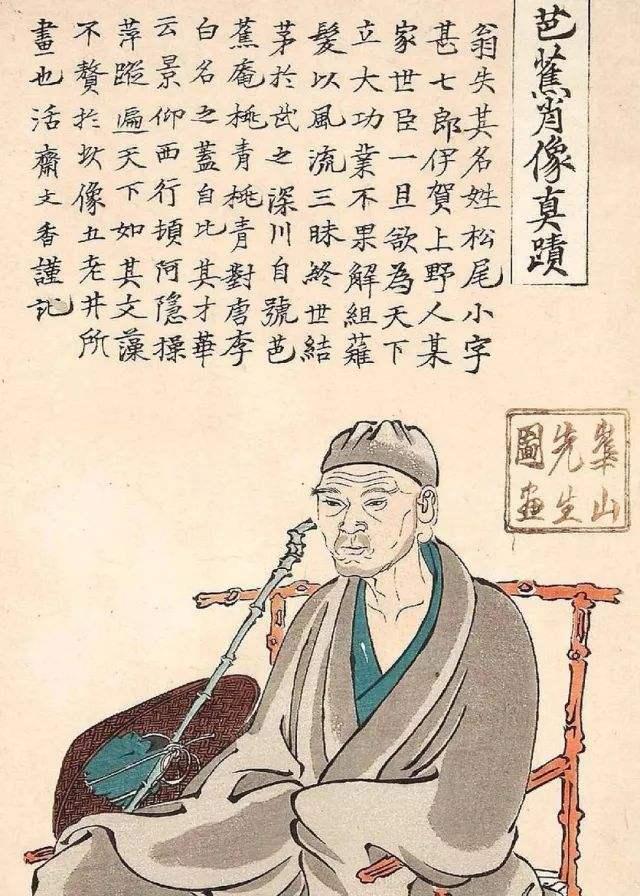 芭蕉肖像真蹟
翁失其名姓松尾小字
甚七郎伊賀上野人某
家世臣一旦欲為天下
立大功業不果解組薙
髮以風流三昧終世結
茅於武之深川自號芭
蕉庵桃青桃青對唐李
白名之蓋自比其才華
云景仰西行頓阿隱操
萍蹤遍天下如其文藻
不贅於此像五老井所
畫也活齋文香謹記
崋山
先生
圖画